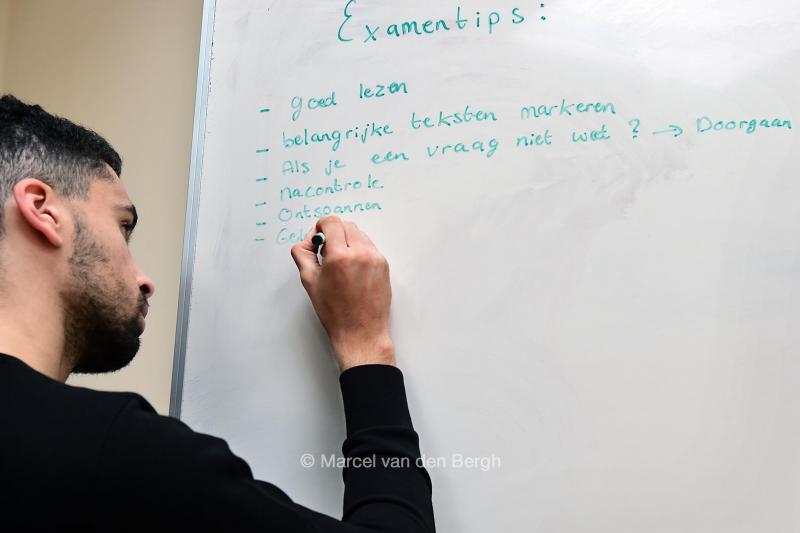 Examentips:
- goed lezen
- belangrijke teksten markeren
- Als je een vraag niet weet ? → Doorgaan
- nacontrole
- Ontspannen
-
© Marcel van den Bergh